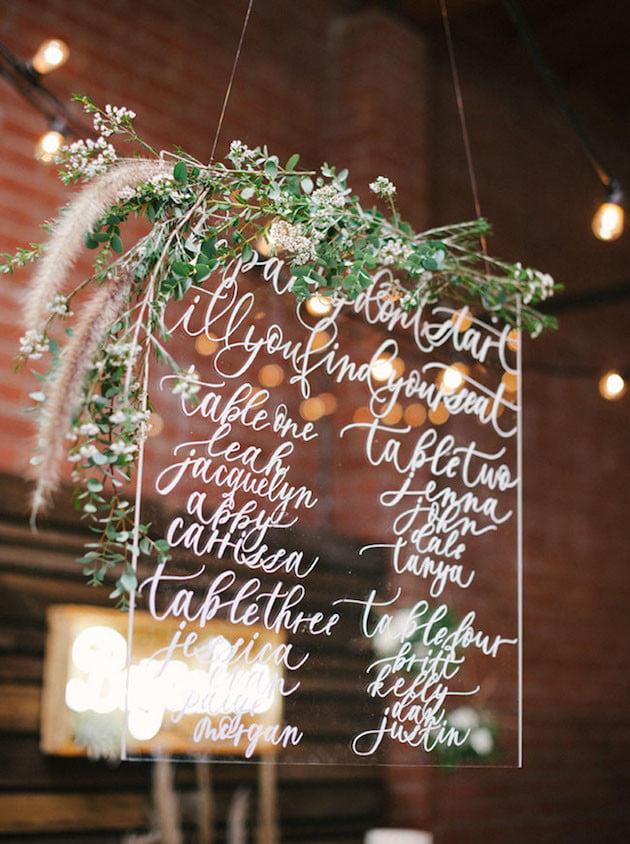 party don't start
till you find your seat
table one
leah
jacquelyn
abby
carrissa
table two
jenna
john
dale
tanya
table three
jessica
evan
paige
morgan
table four
britt
kelly
dan
justin